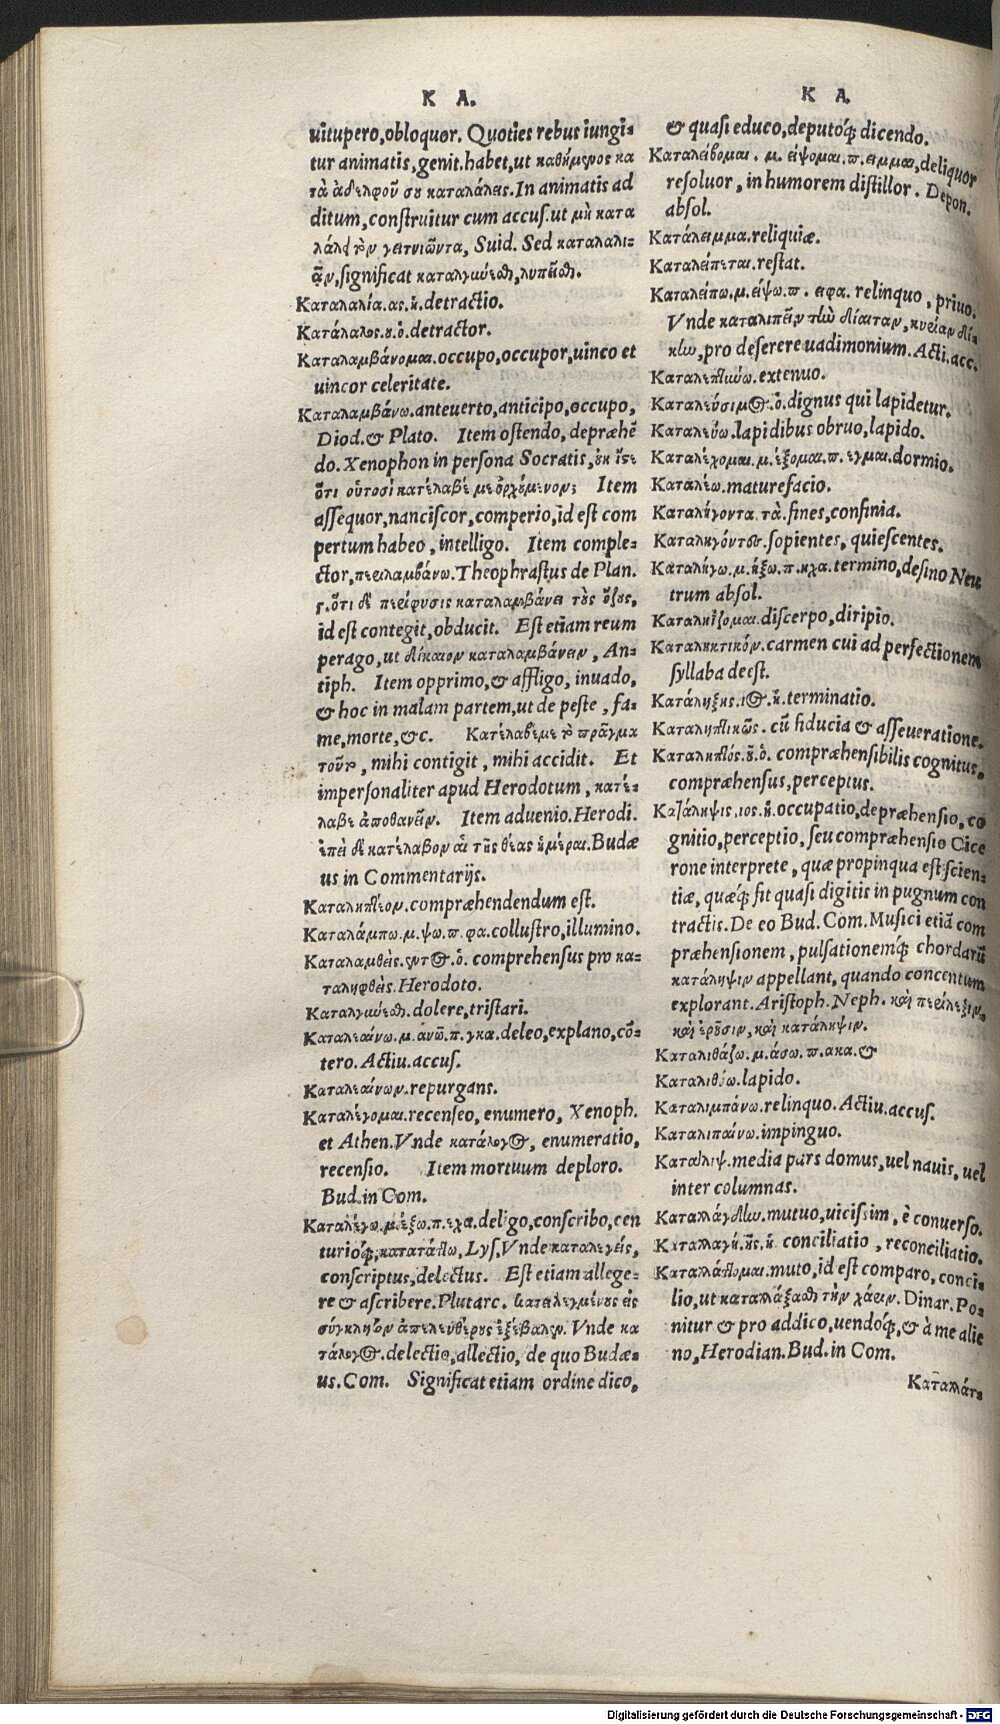 Κ Α.
uitupero, obloquor. Quoties rebus iungi=
tur animatis, genit. habet, ut καθήμερος κα
τὰ ἀδελφοῦ σου καταλάλεις. In animatis ad
ditum, construitur cum accus. ut μὴ κατα
λάλει τὸν γειτνιῶντα, Suid. Sed καταλαλι=
ᾷν, significat
Καταλαλία. ας. ἡ. detractio.
Κατάλαλος. ου. ὁ. detractor.
Καταλαμβάνομαι. occupo, occupor, uinco et
uincor celeritate.
Καταλαμβάνω. anteuerto, anticipo, occupo,
Diod. & Plato. Item ostendo, depræhē
do. Xenophon in persona Socratis, οὐκ ἴστε
ὅτι οὑτοσὶ κατέλαβέ με ὀρχούμενον; Item
assequor, nanciscor, comperio, id est com
pertum habeo, intelligo. Item comple=
ctor, περιλαμβάνω. Theophrastus de Plan.
ὅτι δὲ περίφυσις καταλαμβάνει τοὺς ὄζους,
id est contegit, obducit. Est etiam reum
perago, ut δίκαιον καταλαμβάνειν, An=
tiph. Item opprimo, & affligo, inuado,
& hoc in malam partem, ut de peste, fa=
me, morte, &c. Κατέλαβέ με τὸ πρᾶγμα
τοῦτο, mihi contigit, mihi accidit. Et
impersonaliter apud Herodotum, κατέ=
λαβε ἀποθανεῖν. Item aduenio. Herodi.
ἐπεὶ δὲ κατέλαβον αἱ τῆς θέας ἡμέραι. Budæ
us in Commentarijs.
Καταληπτέον. compræhendendum est.
Καταλάμπω. μ. ψω. π. φα. collustro, illumino.
Καταλαμθεὶς. έντος. ὁ. comprehensus pro κα=
ταληφθεὶς. Herodoto.
dolere, tristari.
Καταλεαίνω. μ. ανῶ. π. γκα. deleo, explano, cō=
tero. Actiu. accus.
Καταλεαίνων. repurgans.
Καταλέγομαι. recenseo, enumero, Xenoph.
et Athen. Vnde κατάλογος, enumeratio,
recensio. Item mortuum deploro.
Bud. in Com.
Καταλέγω. μ. έξω. π. εχα. deligo, conscribo, cen
turioq́;, κατατάττω, Lys. Vnde καταλεγείς,
conscriptus, delectus. Est etiam allege=
re & ascribere. Plutarc. καταλεγμένους εἰς
σύγκλητον ἀπελευθέρους ἐξέβαλεν. Vnde κα
τάλογος. delectio, allectio, de quo Budæ=
us. Com. Significat etiam ordine dico,
Κ Α.
& quasi educo, deputoq́; dicendo.
Καταλείβομαι. μ. είψομαι. π. ειμμαι, deliquor
resoluor, in humorem distillor. Depon.
absol.
Κατάλειμμα. reliquiæ.
Καταλείπεται. restat.
Καταλείπω. μ. είψω. π. ειφα. relinquo, priuo.
Vnde καταλιπεῖν τὴν δίαιταν, κυρίαν δί=
κην, pro deserere uadimonium. Acti. acc.
Καταλεπτύνω. extenuo.
Καταλεύσιμος. ὁ. dignus qui lapidetur.
Καταλεύω. lapidibus obruo, lapido.
Καταλέχομαι. μ. έξομαι. π. εγμαι. dormio.
Καταλέω. maturefacio.
Καταλήγοντα. τὰ. fines, confinia.
Καταληγόντως. sopientes, quiescentes.
Καταλήγω. μ. ήξω. π. ηχα. termino, desino Neu
trum absol.
Καταληΐζομαι. discerpo, diripio.
Καταληκτικόν. carmen cui ad perfectionem
syllaba deest.
Κατάληξις. ιος. ἡ. terminatio.
Καταληπτικῶς. cū fiducia & asseueratione.
Καταληπτός. οῦ. ὁ. compræhensibilis cognitus,
compræhensus, perceptus.
Κατάληψις, ιος. ἡ. occupatio, depræhensio, co
gnitio, perceptio, seu compræhensio Cice
rone interprete, quæ propinqua est scien=
tiæ, quæq́; fit quasi digitis in pugnum con
tractis. De eo Bud. Com. Musici etiā com
præhensionem, pulsationemq́; chordarū
κατάληψιν appellant, quando concentum
explorant. Aristoph. Neph. καὶ περίλεξιν,
καὶ κροῦσιν, καὶ κατάληψιν.
Καταλιθάζω. μ. άσω. π. ακα. &
Καταλιθόω. lapido.
Καταλιμπάνω. relinquo. Actiu. accus.
Καταλιπαίνω. impinguo.
Καταῖλιψ. media pars domus, uel nauis, uel
inter columnas.
Καταλλάγδην. mutuo, uicissim, è conuerso.
Καταλλαγή. ῆς. ἡ. conciliatio, reconciliatio.
Καταλλάττομαι. muto, id est comparo, conci=
lio, ut καταλλάξασθαι τὴν χάριν. Dinar. Po=
nitur & pro addico, uendoq́;, & à me alie
no, Herodian. Bud. in Com.
Καταλλάτ=
Digitalisierung gefördert durch die Deutsche Forschungsgemeinschaft - DFG